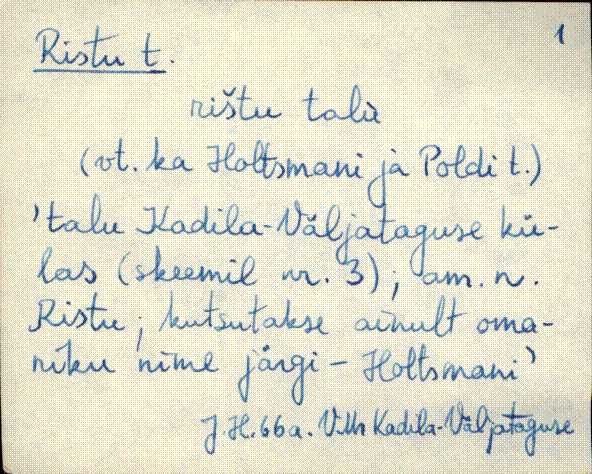 1
Ristu t.
rištu talù
(vt. ka Holtsmani ja Poldi t.)
'talu Kadila-Väljataguse kü-
las (skeemil nr. 3); am. n.
Ristu; kutsutakse ainult oma-
niku nime järgi – Holtsmani'
J. H. 66a. V.Mr Kadila-Väljataguse